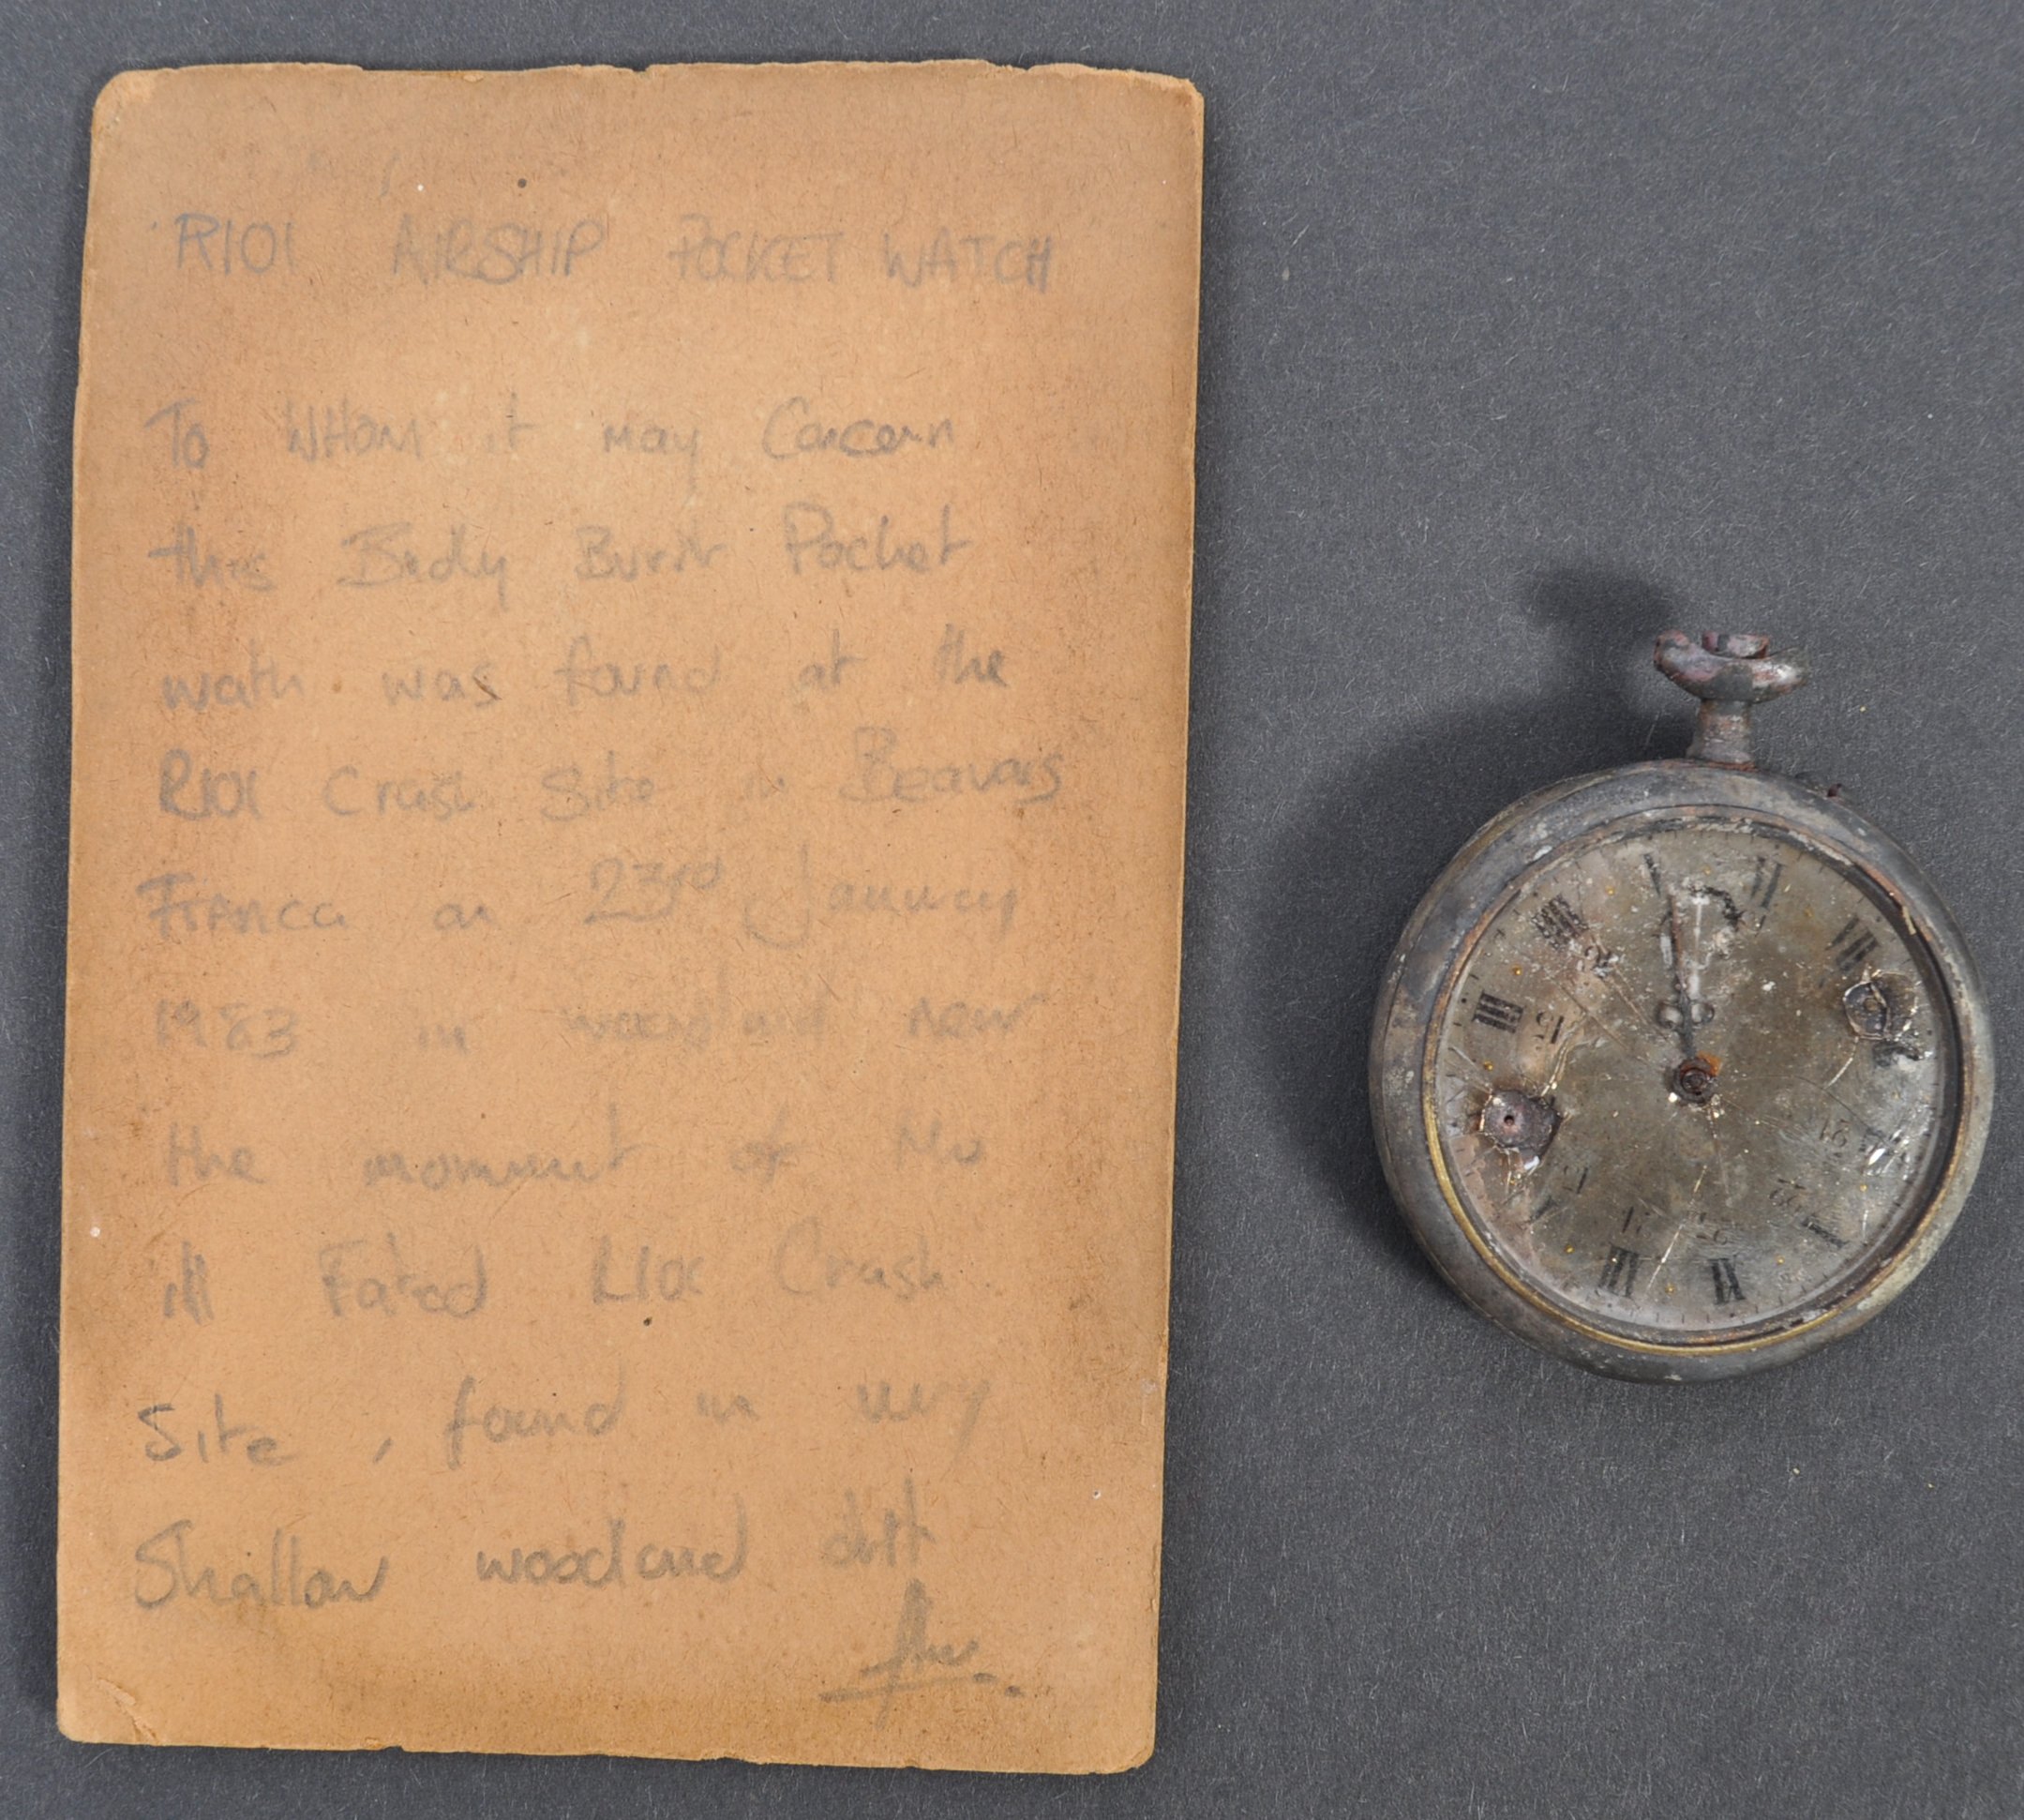 R101 AIRSHIP POCKET WATCH
To WHom it may Concern
this Badly Burnt Pocket
wath was found at the
R101 Crash Site in Beavais
France on 23rd January
1983 in woodland near
the moment of the
ill Fated R101 Crash
Site, found in very
Shallow woodland dirt